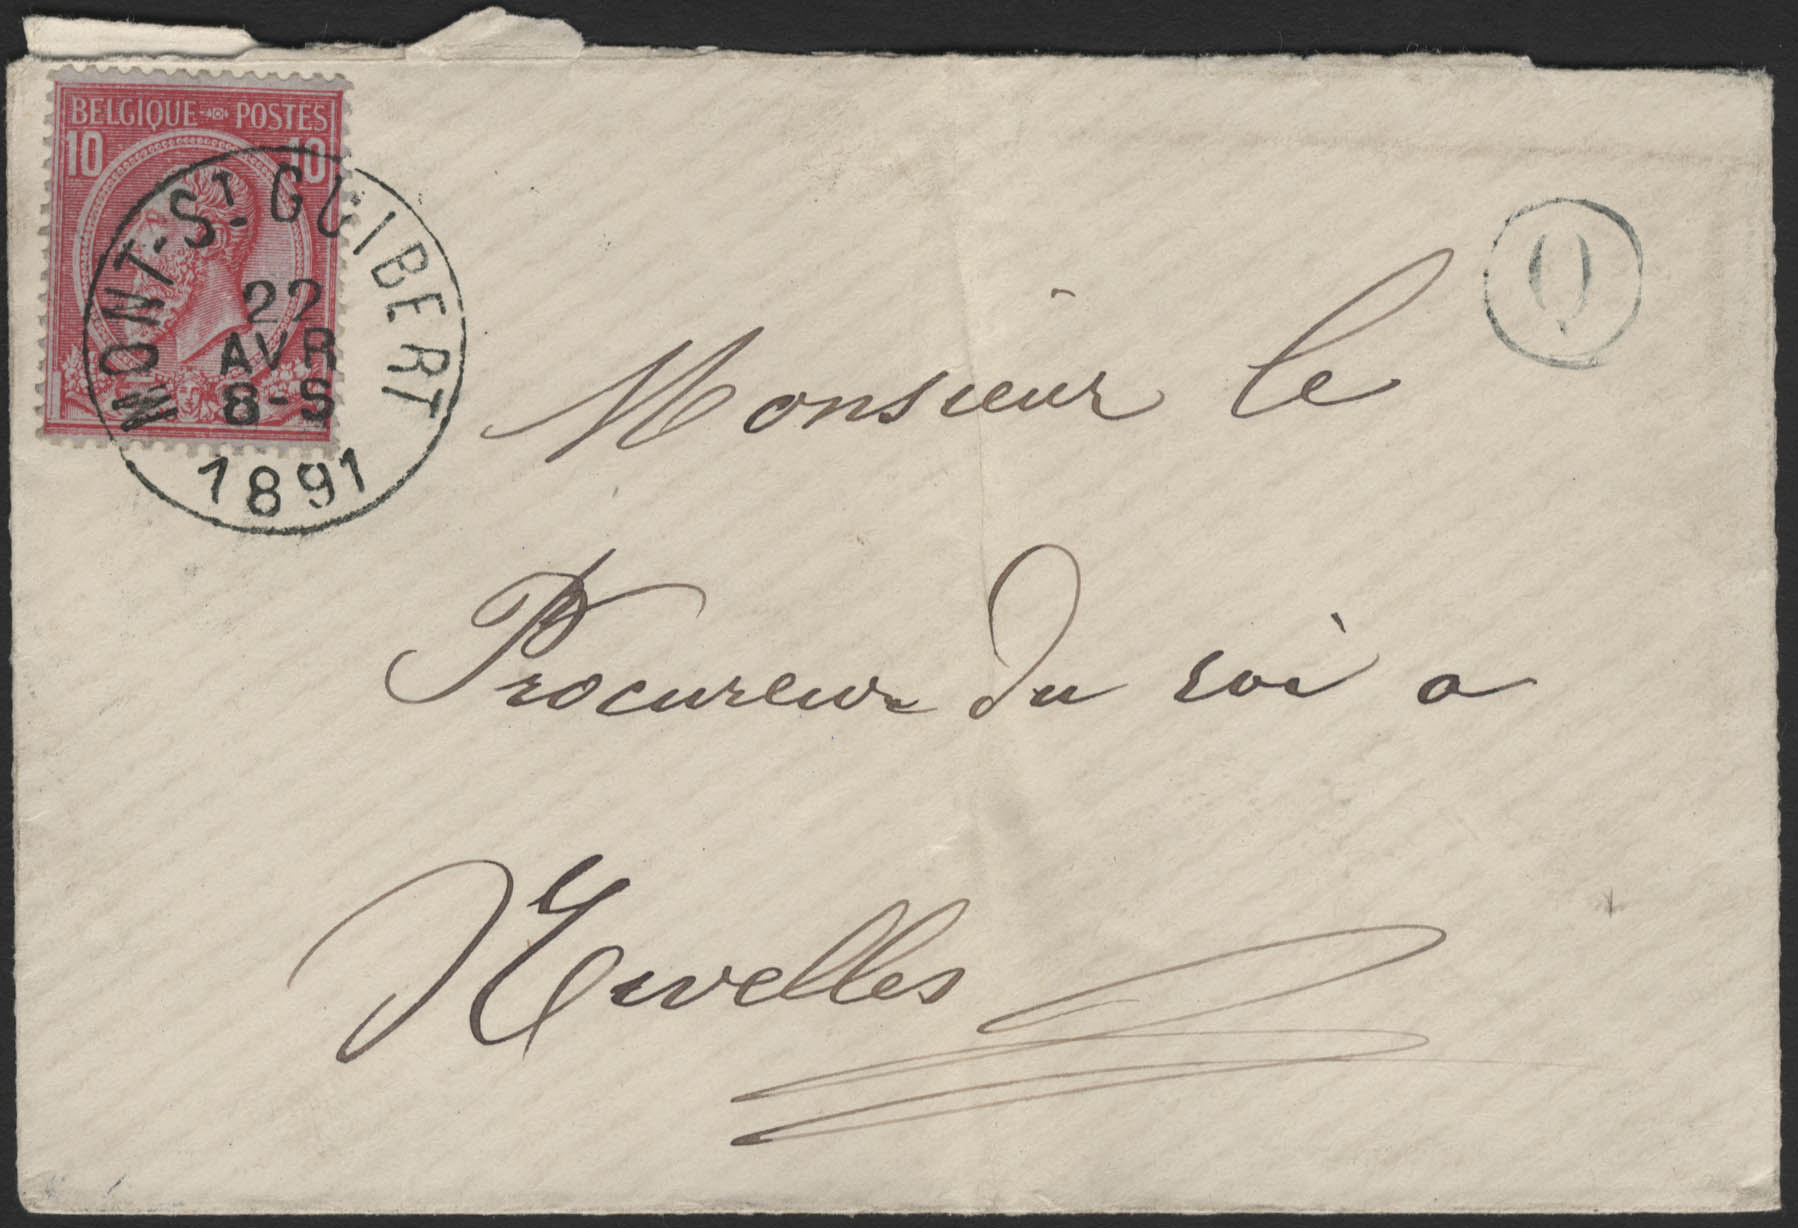 BELGIQUE POSTES
10 10
MONT-ST-GUIBERT
22
AVR
8-S
1891
Q
Monsieur le
Procureur du roi a
Nivelles